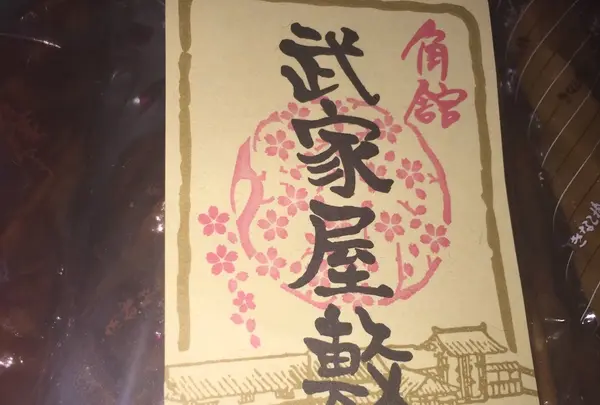 角館
武家屋敷